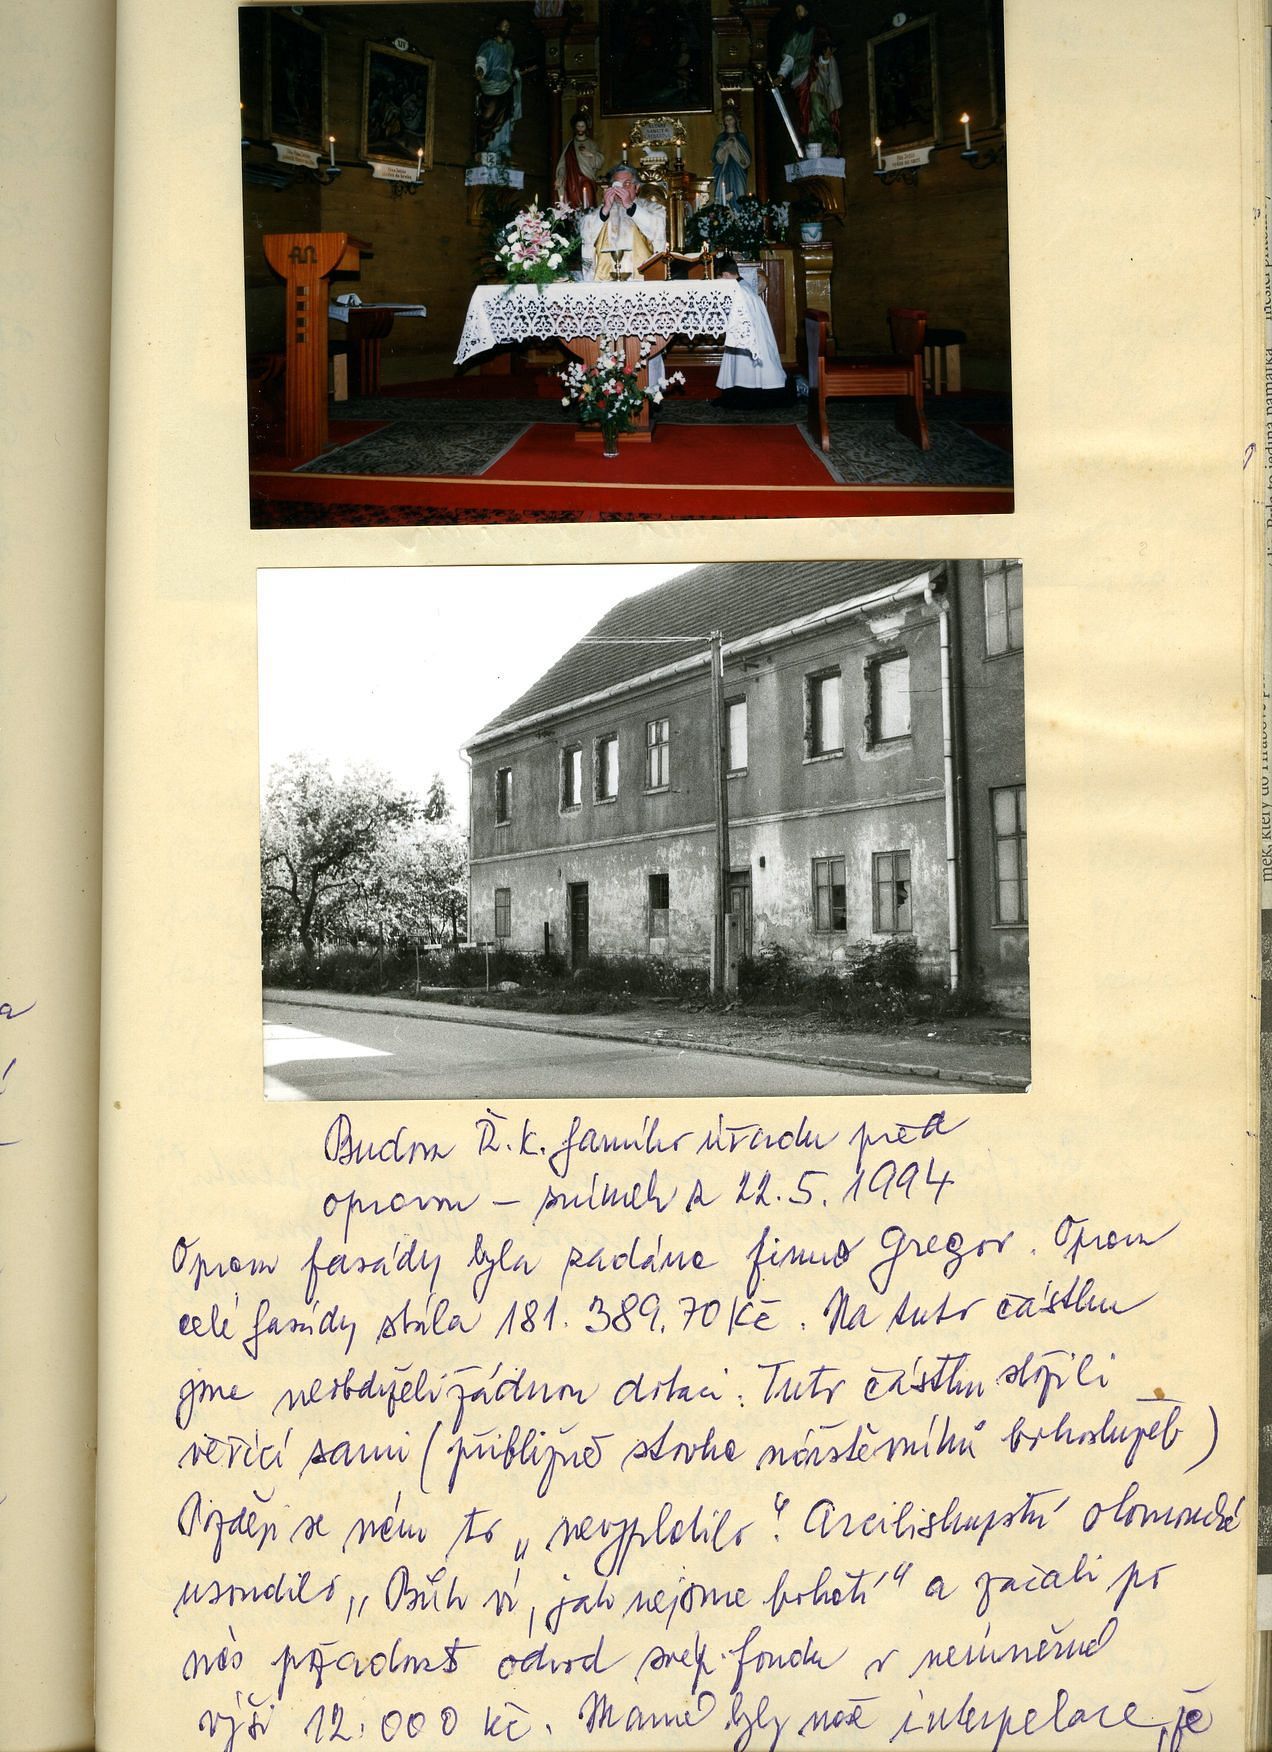 Budova Ř.K. farního úřadu před
opravou – snímek z 22.5.1994
Oprava fasády byla zadána firmě Gregor. Oprava
celé fasády stála 181.389,70 Kč. Na tuto částku
jsme neobdrželi žádnou dotaci. Tuto částku složili
věřící sami (přibližně stovka návštěvníků bohoslužeb)
Později se nám to „nevyplatilo“. Arcibiskupství olomoucké
usoudilo „Bůh ví, jak nejsme bohatí“ a začali po
nás požadovat odvod svép. fondu v neúměrné
výši 12.000 Kč. Marné byly naše interpelace, že